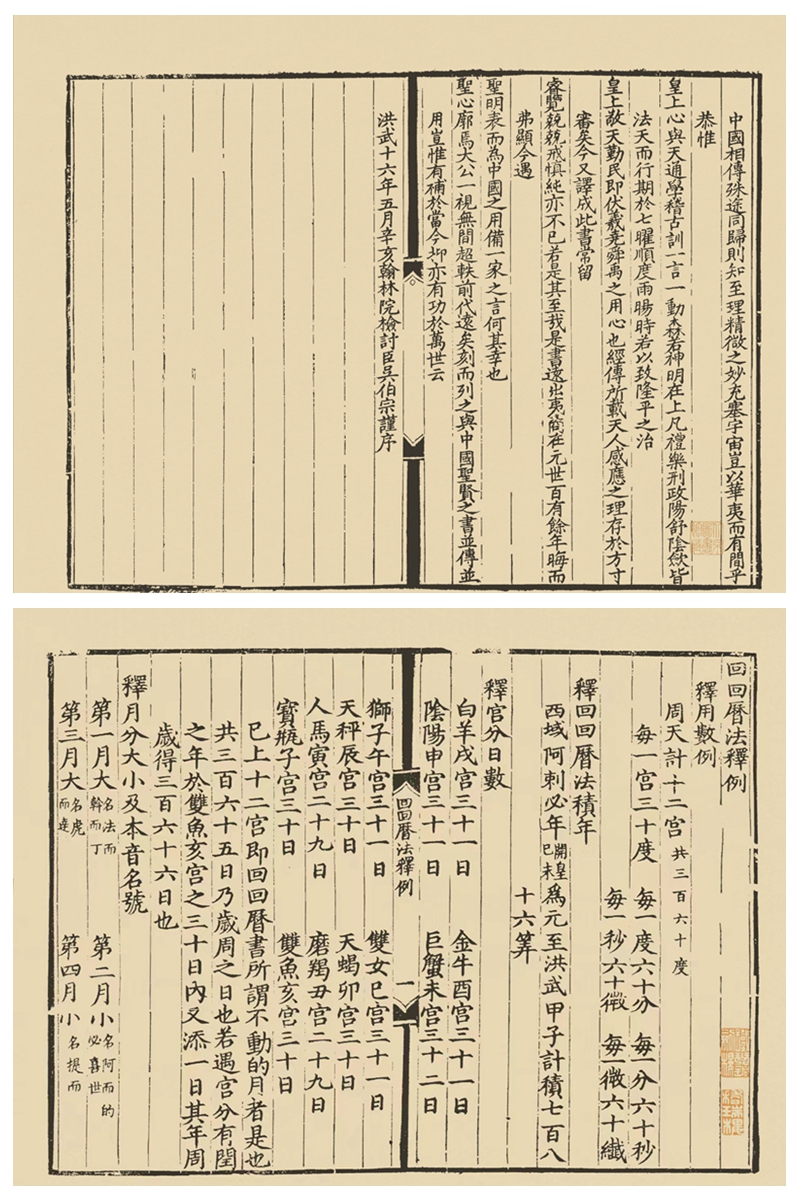 中國相傳殊途同歸則知至理精微之妙充塞宇宙豈以華夷而有間乎
恭惟
皇上心與天通學稽古訓一言一動森若神明在上凡禮樂刑政陽舒陰斂皆
法天而行期於七曜順度雨暘時若以致隆平之治
皇上敬天勤民即伏羲堯舜禹之用心也經傳所載天人感應之理存於方寸
審矣今又譯成此書常留
睿覽兢兢戒慎純亦不已若是其至哉是書遠出夷裔在元世百有餘年晦而
弗顯今遇
聖明表而為中國之用備一家之言何其幸也
聖心廓焉大公一視無間超軼前代遠矣刻而列之與中國聖賢之書並傳並
用豈惟有補於當今抑亦有功於萬世云
洪武十六年五月辛亥翰林院檢討臣吳伯宗謹序
回回曆法釋例
釋用數例
周天計十二宮 共三百六十度
每一宮三十度 每一度六十分 每一分六十秒
每一秒六十微 每一微六十纖
釋回回曆法積年
西域阿剌必年 開皇己未 為元至洪武甲子計積七百八
十六筭
釋宮分日數
白羊戌宮三十一日 金牛酉宮三十一日
陰陽申宮三十一日 巨蟹未宮三十二日
回回曆法釋例 一
獅子午宮三十一日 雙女巳宮三十一日
天秤辰宮三十日 天蝎卯宮三十日
人馬寅宮二十九日 磨羯丑宮二十九日
寶瓶子宮三十日 雙魚亥宮三十日
已上十二宮即回回曆書所謂不動的月者是也
共三百六十五日乃歲周之日也若遇宮分有閏
之年於雙魚亥宮之三十日內又添一日其年周
歲得三百六十六日也
釋月分大小及本音名號
第一月大 名法而斡而丁 第二月小 名阿而的必喜世
第三月大 名虎而達 第四月小 名提而